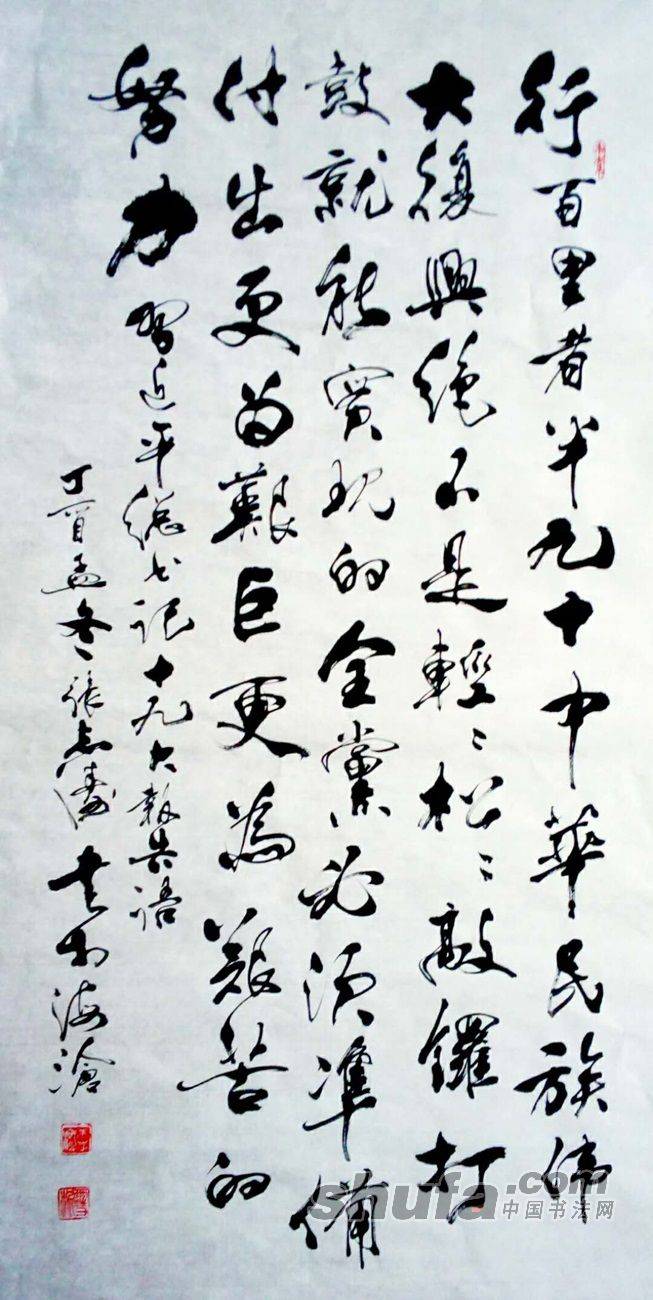 行百里者半九十中華民族偉
大復興絕不是輕々松々敲鑼打
鼓就能實現的全黨必須準備
付出更為艱巨更為艱苦的
努力 習近平總书記十九大報告語
丁酉孟冬張志濤书於海滄
shufa.com
中国书法网